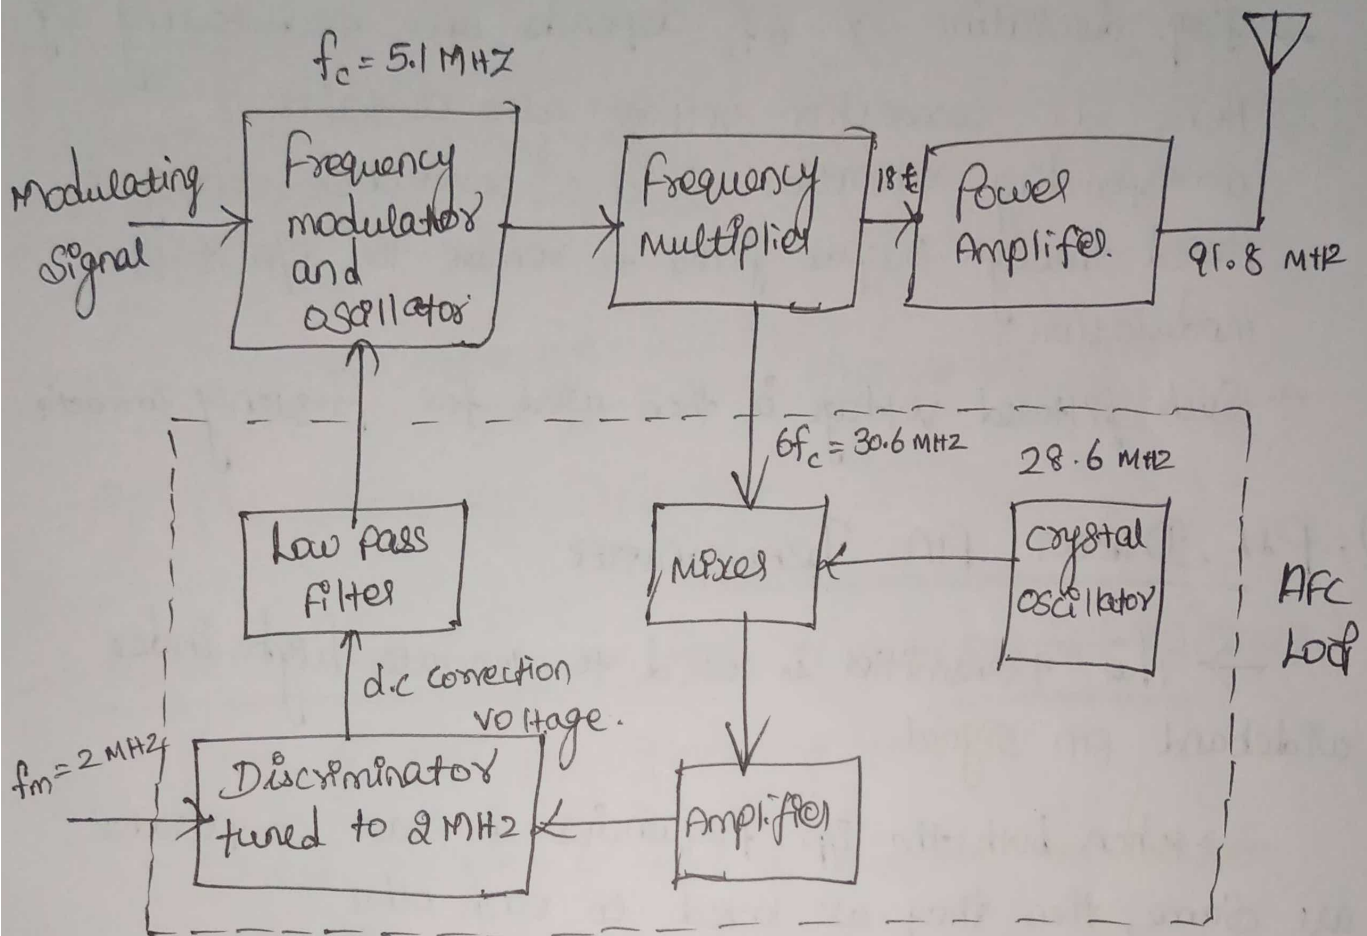 fc = 5.1 MHZ
Modulating
Signal
Frequency
modulator
and
oscillator
Frequency
Multiplier
18f
Power
Amplifer.
91.8 MHZ
6fc = 30.6 MHZ
28.6 MHZ
Low pass
Filter
Mixer
Crystal
oscillator
AFC
d.c correction
voltage.
fm = 2 MHZ
Discriminator
tuned to 2 MHZ
Amplifier